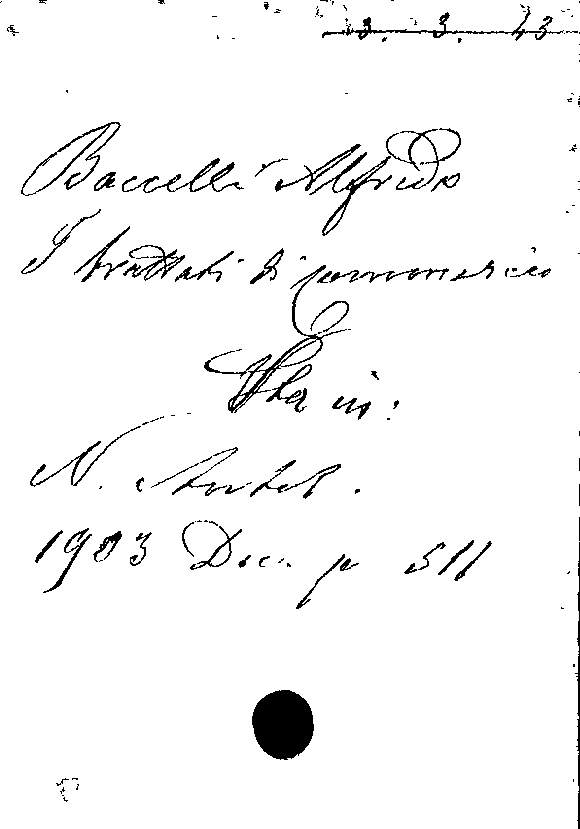 3. 3. 43
Baccelli Alfredo
I trattati di commercio
Sta in:
N. Antol.
1903 Dec. p 511